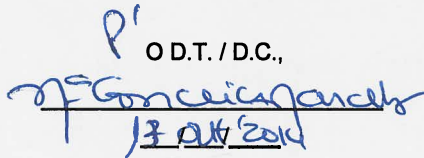 P'
O D.T. / D.C.,
Mª Conceição
17 Out 2014